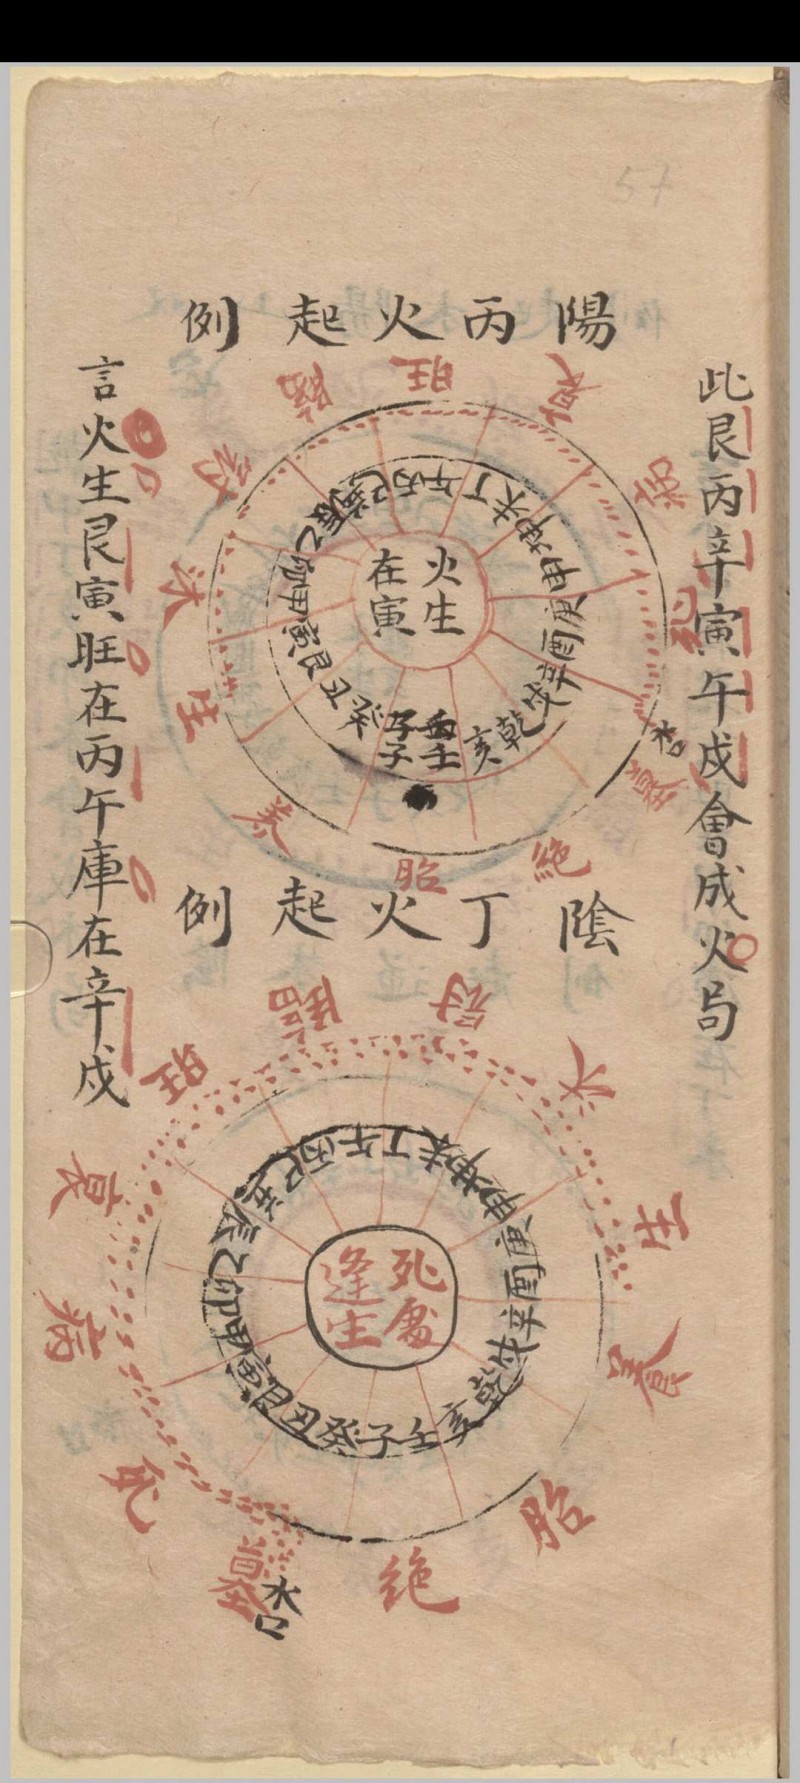 57
陽丙火起例
此艮丙辛寅午戍會成火局
言火生艮寅旺在丙午庫在辛戍
火生
在寅
壬子癸丑艮寅甲卯乙辰巽巳丙午丁未坤申庚酉辛戍乾亥
胎養生沐冠臨旺衰病死墓絕
水口
陰丁火起例
死處
逢生
壬子癸丑艮寅甲卯乙辰巽巳丙午丁未坤申庚酉辛戍乾亥
絶墓死病衰旺臨冠沐生養胎
水口